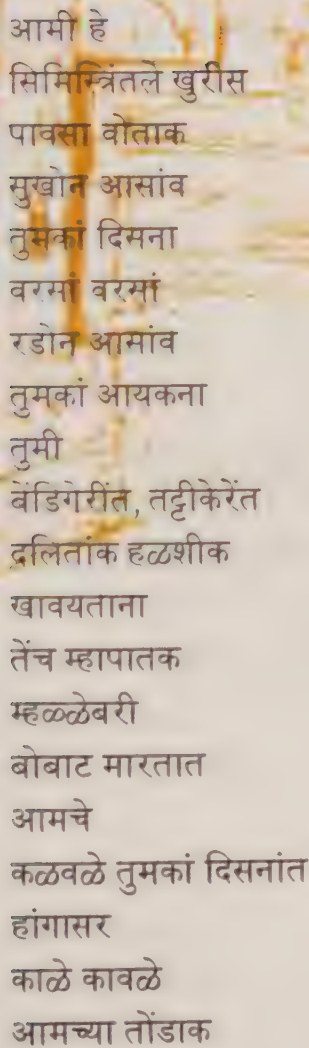 आमी हे
सिमिस्त्रिंतले खुरीस
पावसा वोताक
सुखोन आसांव
तुमकां दिसना
वरसां वरसां
रडोन आसांव
तुमकां आयकना
तुमी
बेंडिगेरींत, तट्टीकेरेंत
दलितांक हळशीक
खावयताना
तेंच म्हापातक
म्हळ्ळेबरी
बोबाट मारतात
आमचे
कळवळे तुमकां दिसनांत
हांगासर
काळे कावळे
आमच्या तोंडाक